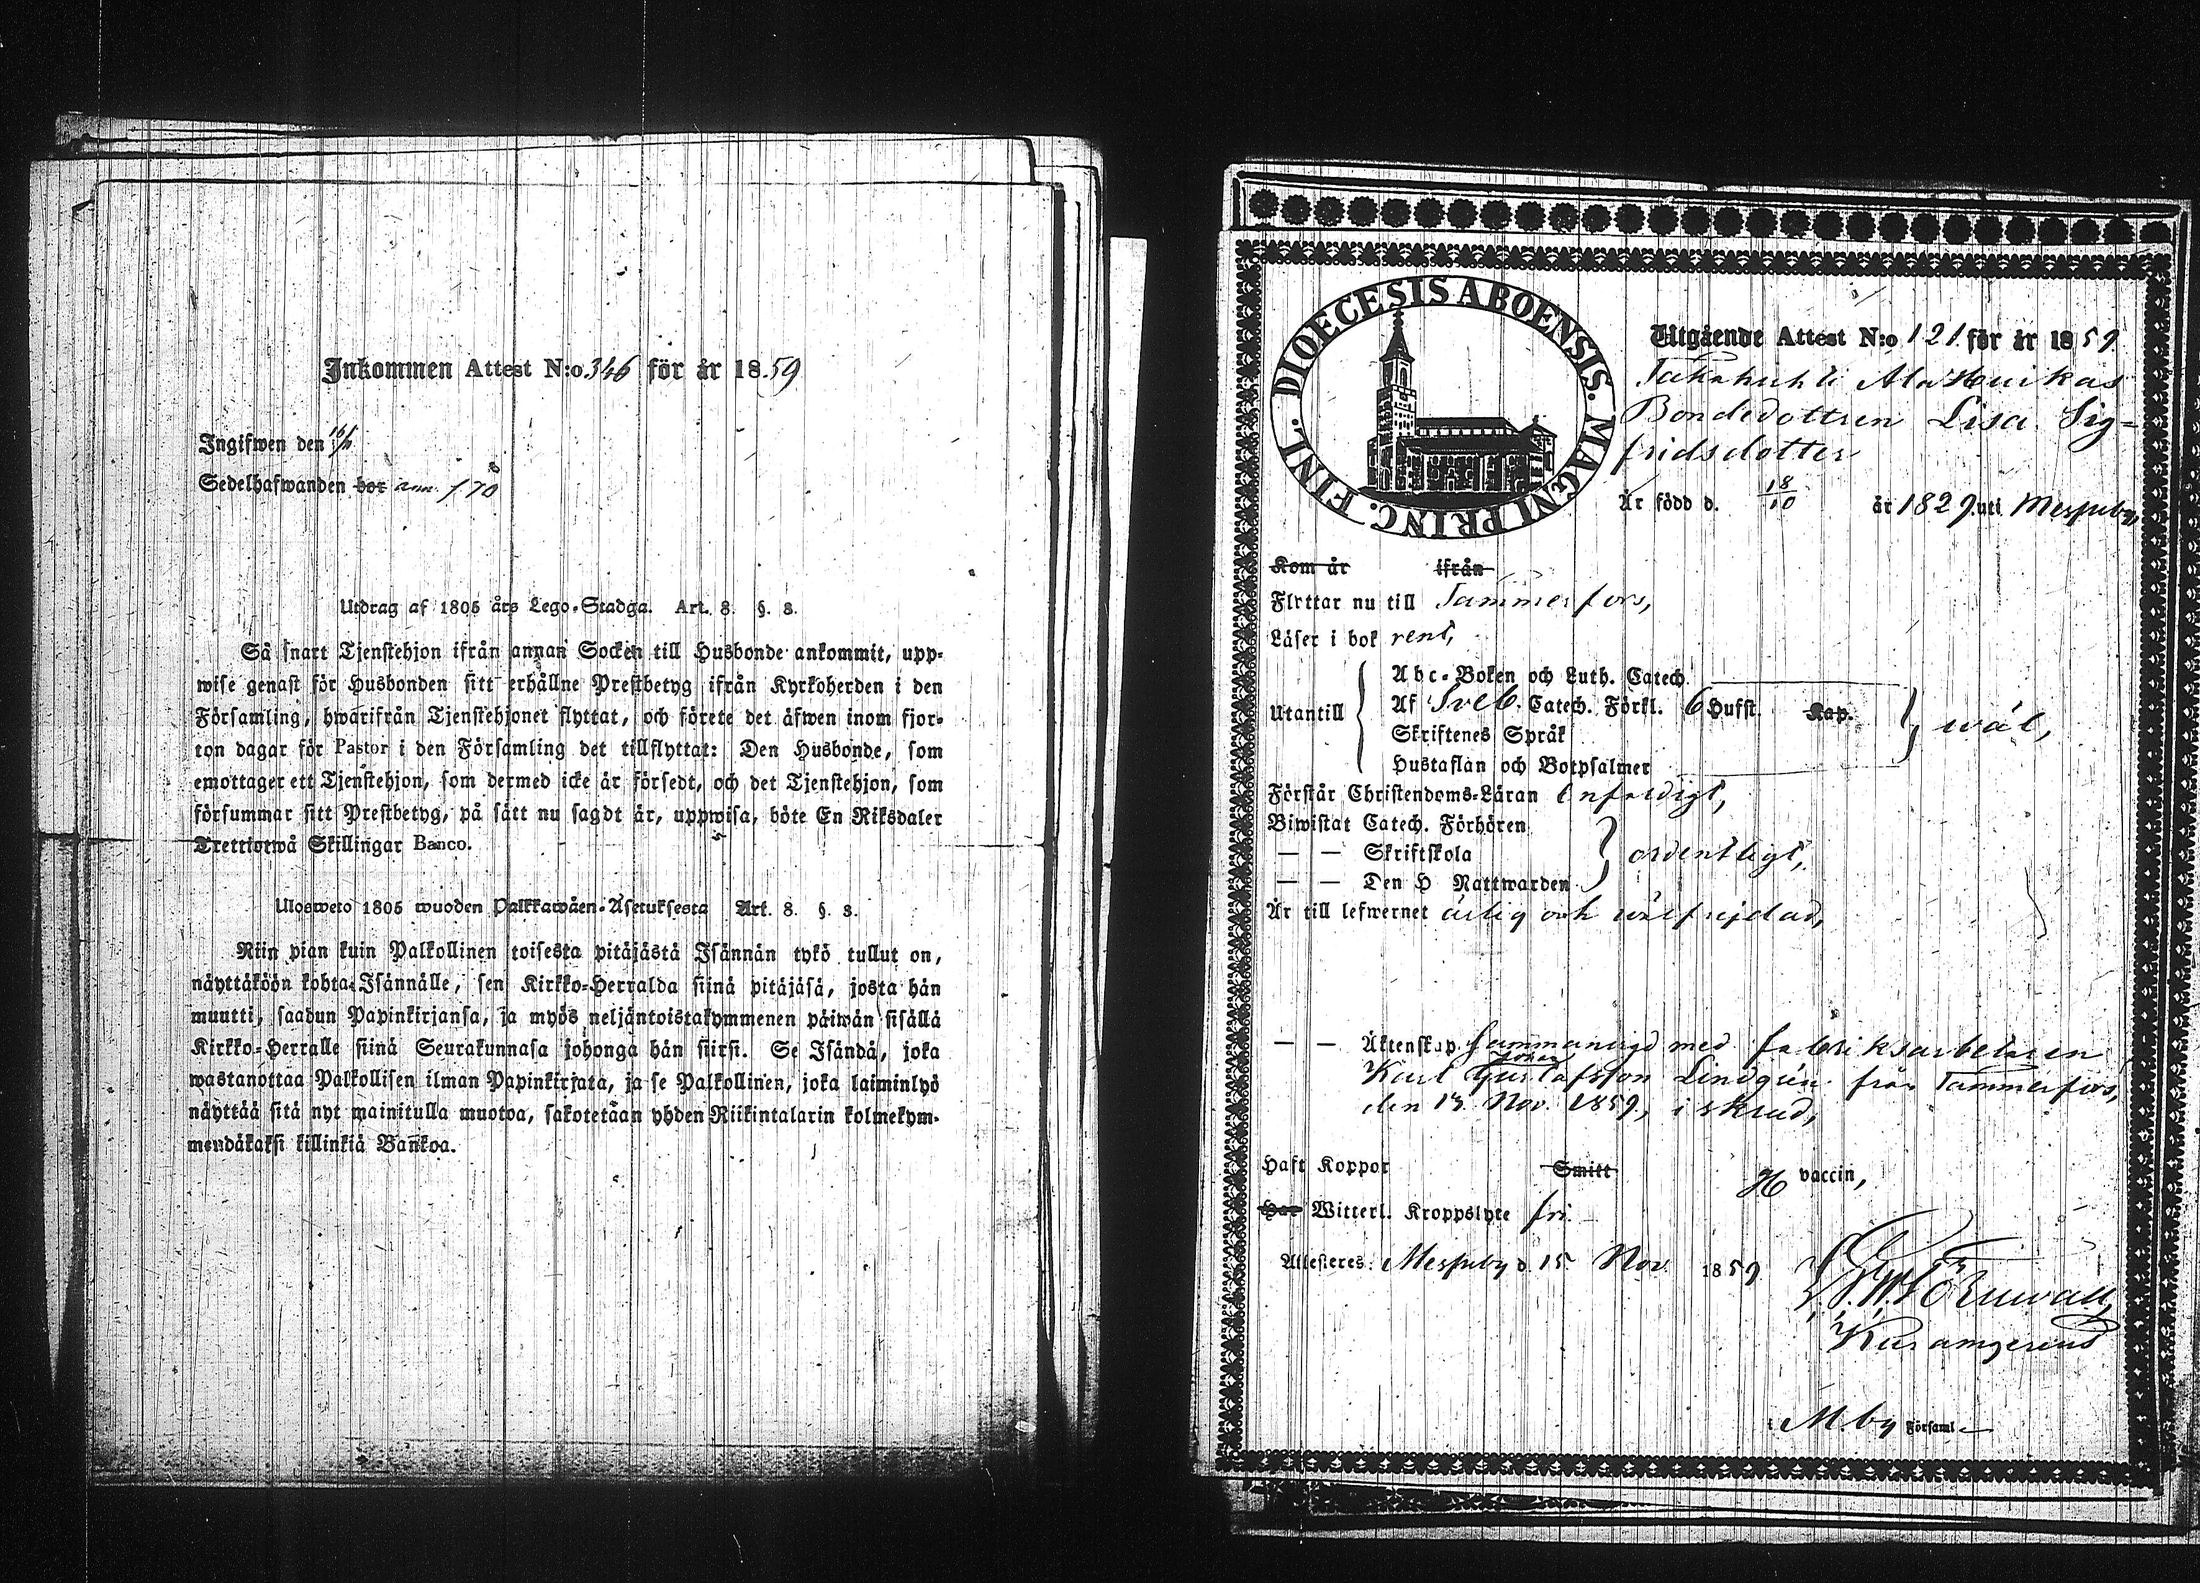 Inkommen Attest N:o 346 för år 1859
Ingifwen den
Sedelhafwanden bor ann. 170
Utdrag af 1805 års Lego-Stadga. Art. 8. §. 8.
Så snart Tjenstehjon ifrån annan Socken till Husbonde ankommit, upp-
wise genast för Husbonden sitt erhållne Prestbetyg ifrån Kyrkoherden i den
Församling, hwarifrån Tjenstehjonet flyttat, och förete det äfwen inom fjor-
ton dagar för Pastor i den Församling det tillflyttat: Den Husbonde, som
emottager ett Tjenstehjon, som dermed icke är försedt, och det Tjenstehjon, som
försummar sitt Prestbetyg, på sätt nu sagdt är, uppwisa, böte En Riksdaler
Trettiotwå Skillingar Banco.
Ulosweto 1805 wuoden Palkkawäen-Asetuksesta Art. 8. §. 8.
Niin pian kuin Palkollinen toisesta pitäjästä Isännän tykö tullut on,
näyttäköön kohta Isännälle, sen Kirkko-Herralda siinä pitäjäsä, josta hän
muutti, saadun Papinkirjansa, ja myös neljäntoistakymmenen päiwän sisällä
Kirkko-Herralle siinä Seurakunnasa johonga hän siirsi. Se Isändä, joka
wastanottaa Palkollisen ilman Papinkirjata, ja se Palkollinen, joka laiminlyö
näyttää sitä nyt mainitulla muotoa, sakotetaan yhden Riikintalarin kolmekym-
mendäkaksi killinkiä Bankoa.
DIOECESIS ABOENSIS. MAGNI PRINC. FINL.
Utgående Attest N:o 121 för år 1859
Bondedottren Lisa Sig-
fridsdotter
Är född d. 18/10 år 1829 uti Messuby
Kom år ifrån
Flyttar nu till Tammerfors,
Läser i bok rent,
Abc-Boken och Luth. Catech.
Utantill Af Sveb. Catech. Förkl. 6 Hufst. Kap. wäl,
Skriftenes Språk
Hustaflan och Botpsalmer
Förstår Christendoms-Läran enfaldigt,
Biwistat Catech. Förhören
— — Skriftskola ordentligt,
— — Den H Nattwarden
Är till lefwernet ärlig och wälfrejdad,
— — Äktenskap Sammanvigd med fabriksarbetaren
Johan
Karl Gustafsson Lindgrén från Tammerfors,
den 13 Nov. 1859, i skrud,
Haft Koppor Smitt H vaccin,
Har Witterl. Kroppslyte fri.
Attesteres: Messuby d. 15 Nov 1859
i M.by Församl